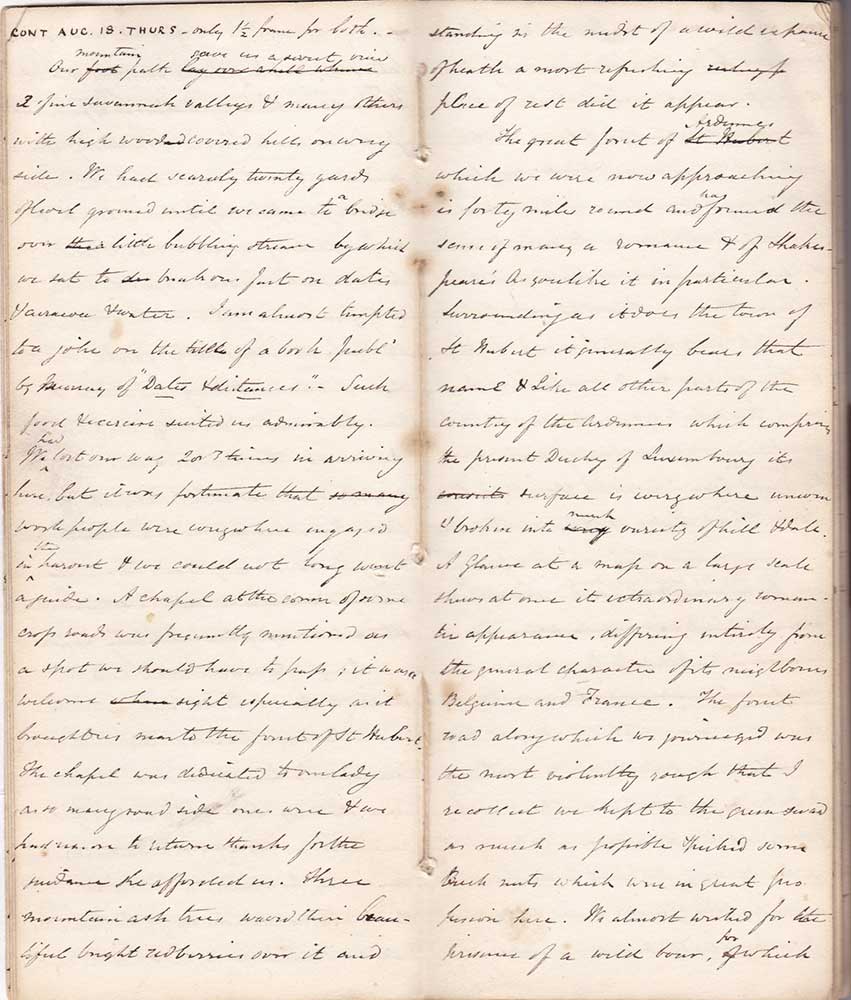 CONT AUG. 18. THURS - only 1½ franc for both. -
mountain gave us a sweet view
Our foot path lay over a hill whence
2 fine savannah valleys & many others
with high wooded covered hills on every
side. We had scarcely twenty yards
of level ground until we came to a bridge
over little bubbling stream by which
we sat to breakfast just on dates
& water. I am almost tempted
to a joke on the title of a book publ'
by Murray of "Dates & distances". - Such
food & exercise suited us admirably.
had
We lost our way 2 or 3 times in arriving
here, but it was fortunate that so many
work people were everywhere engaged
the
in harvest & we could not long want
a guide. A chapel at the corner of some
cross roads was frequently mentioned as
a spot we should have to pass; it was a
welcome sight especially as it
brought us near to the forest of St Hubert.
The chapel was dedicated to our lady
as so many road side ones were & we
had reason to return thanks for the
guidance she afforded us. Three
mountain ash trees waved their beau-
tiful bright red berries over it and
standing in the midst of a wild expanse
of heath a most refreshing
place of rest did it appear.
Ardennes
The great forest of St Hubert
which we were now approaching
is forty miles round and has formed the
scene of many a romance & of Shakes-
peare's As you like it in particular.
Surrounding as it does the town of
St Hubert it generally bears that
name & like all other parts of the
country of the Ardennes which comprises
the present Duchy of Luxembourg its
surface is everywhere uneven
much
& broken into very variety of hill & dale.
A glance at a map on a large scale
shews at once its extraordinary roman-
tic appearance, differing entirely from
the general character of its neighbours
Belgium and France. The forest
road along which we journeyed was
the most violently rough that I
recollect we kept to the green sward
as much as possible & picked some
Beech nuts which were in great pro
fusion here. We almost wished for the
presence of a wild boar, for which